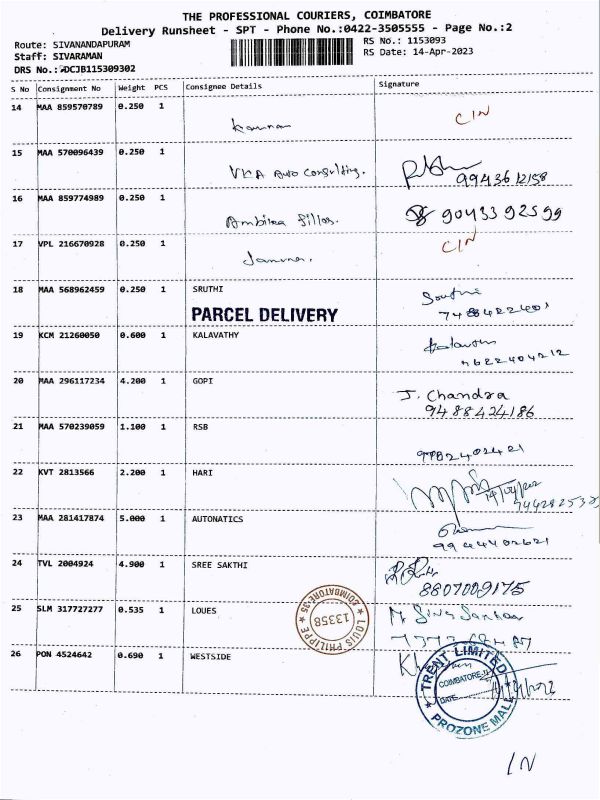 THE PROFESSIONAL COURIERS, COIMBATORE
Delivery Runsheet - SPT - Phone No.:0422-3505555 - Page No.:2
Route: SIVANANDAPURAM
RS No.: 1153093
Staff: SIVARAMAN
RS Date: 14-Apr-2023
DRS No.:
S No Consignment No Weight PCS Consignee Details Signature
14 MAA 859570789 0.250 1
Kannan CIN
15 MAA 570096439 0.250 1
Auto Consulting.
9943612158
16 MAA 859774989 0.250 1
9043392599
17 VPL 216670928 0.250 1
CIN
18 MAA 568962459 0.250 1 SRUTHI
PARCEL DELIVERY
19 KCM 21260050 0.600 1 KALAVATHY
20 MAA 296117234 4.200 1 GOPI
J. Chandra
9488424186
21 MAA 570239059 1.100 1 RSB
22 KVT 2813566 2.200 1 HARI
23 MAA 281417874 5.000 1 AUTONATICS
24 TVL 2004924 4.900 1 SREE SAKTHI
8807009175
25 SLM 317727277 0.535 1 LOUES
LOUIS PHILIPPE
13358
COIMBATORE-35
26 PON 4524642 0.690 1 WESTSIDE
TRENT LIMITED
COIMBATORE
DATE
PROZONE MALL
IN